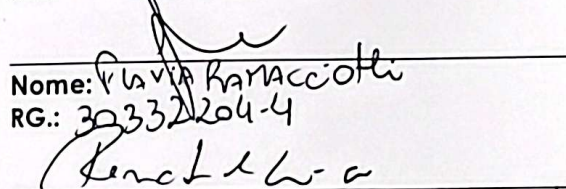 Nome: FLAVIA RAMACCIOTTI
RG.: 30332204-4